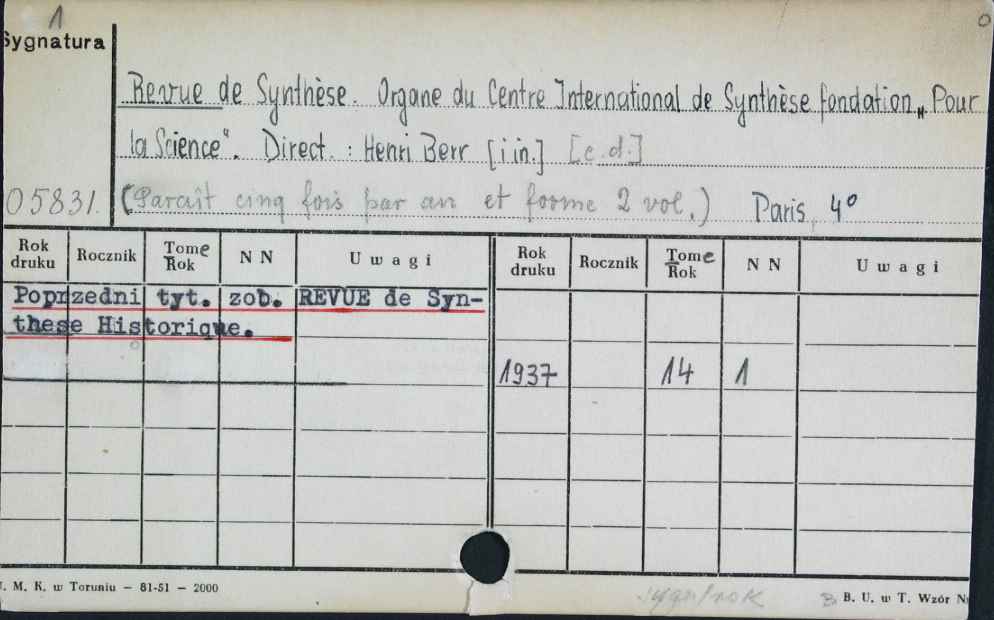 1
0
Sygnatura
Revue de Synthèse. Organe du Centre International de Synthèse fondation „Pour
la Science". Direct. : Henri Berr [i in.] [c.d.]
05831. (Paraît cinq fois par an et forme 2 vol.) Paris, 4°
Rok druku Rocznik Tome Rok N N Uwagi Rok druku Rocznik Tome Rok N N Uwagi
Poprzedni tyt. zob. REVUE de Syn-
these Historique.
1937 14 1
. M. K. w Toruniu – 81-51 – 2000
sygn/rok
B. U. w T. Wzór N